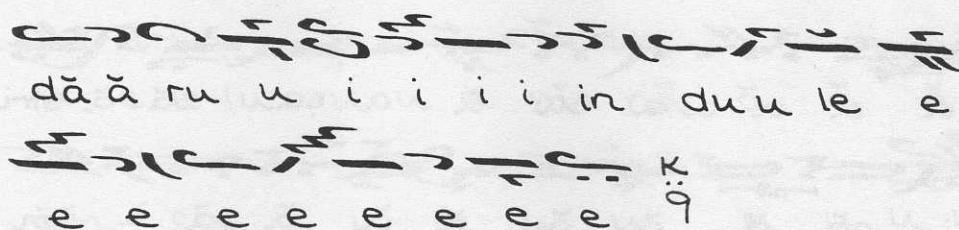 dă ă ru u i i i i in du u le e
e e e e e e e e K
q